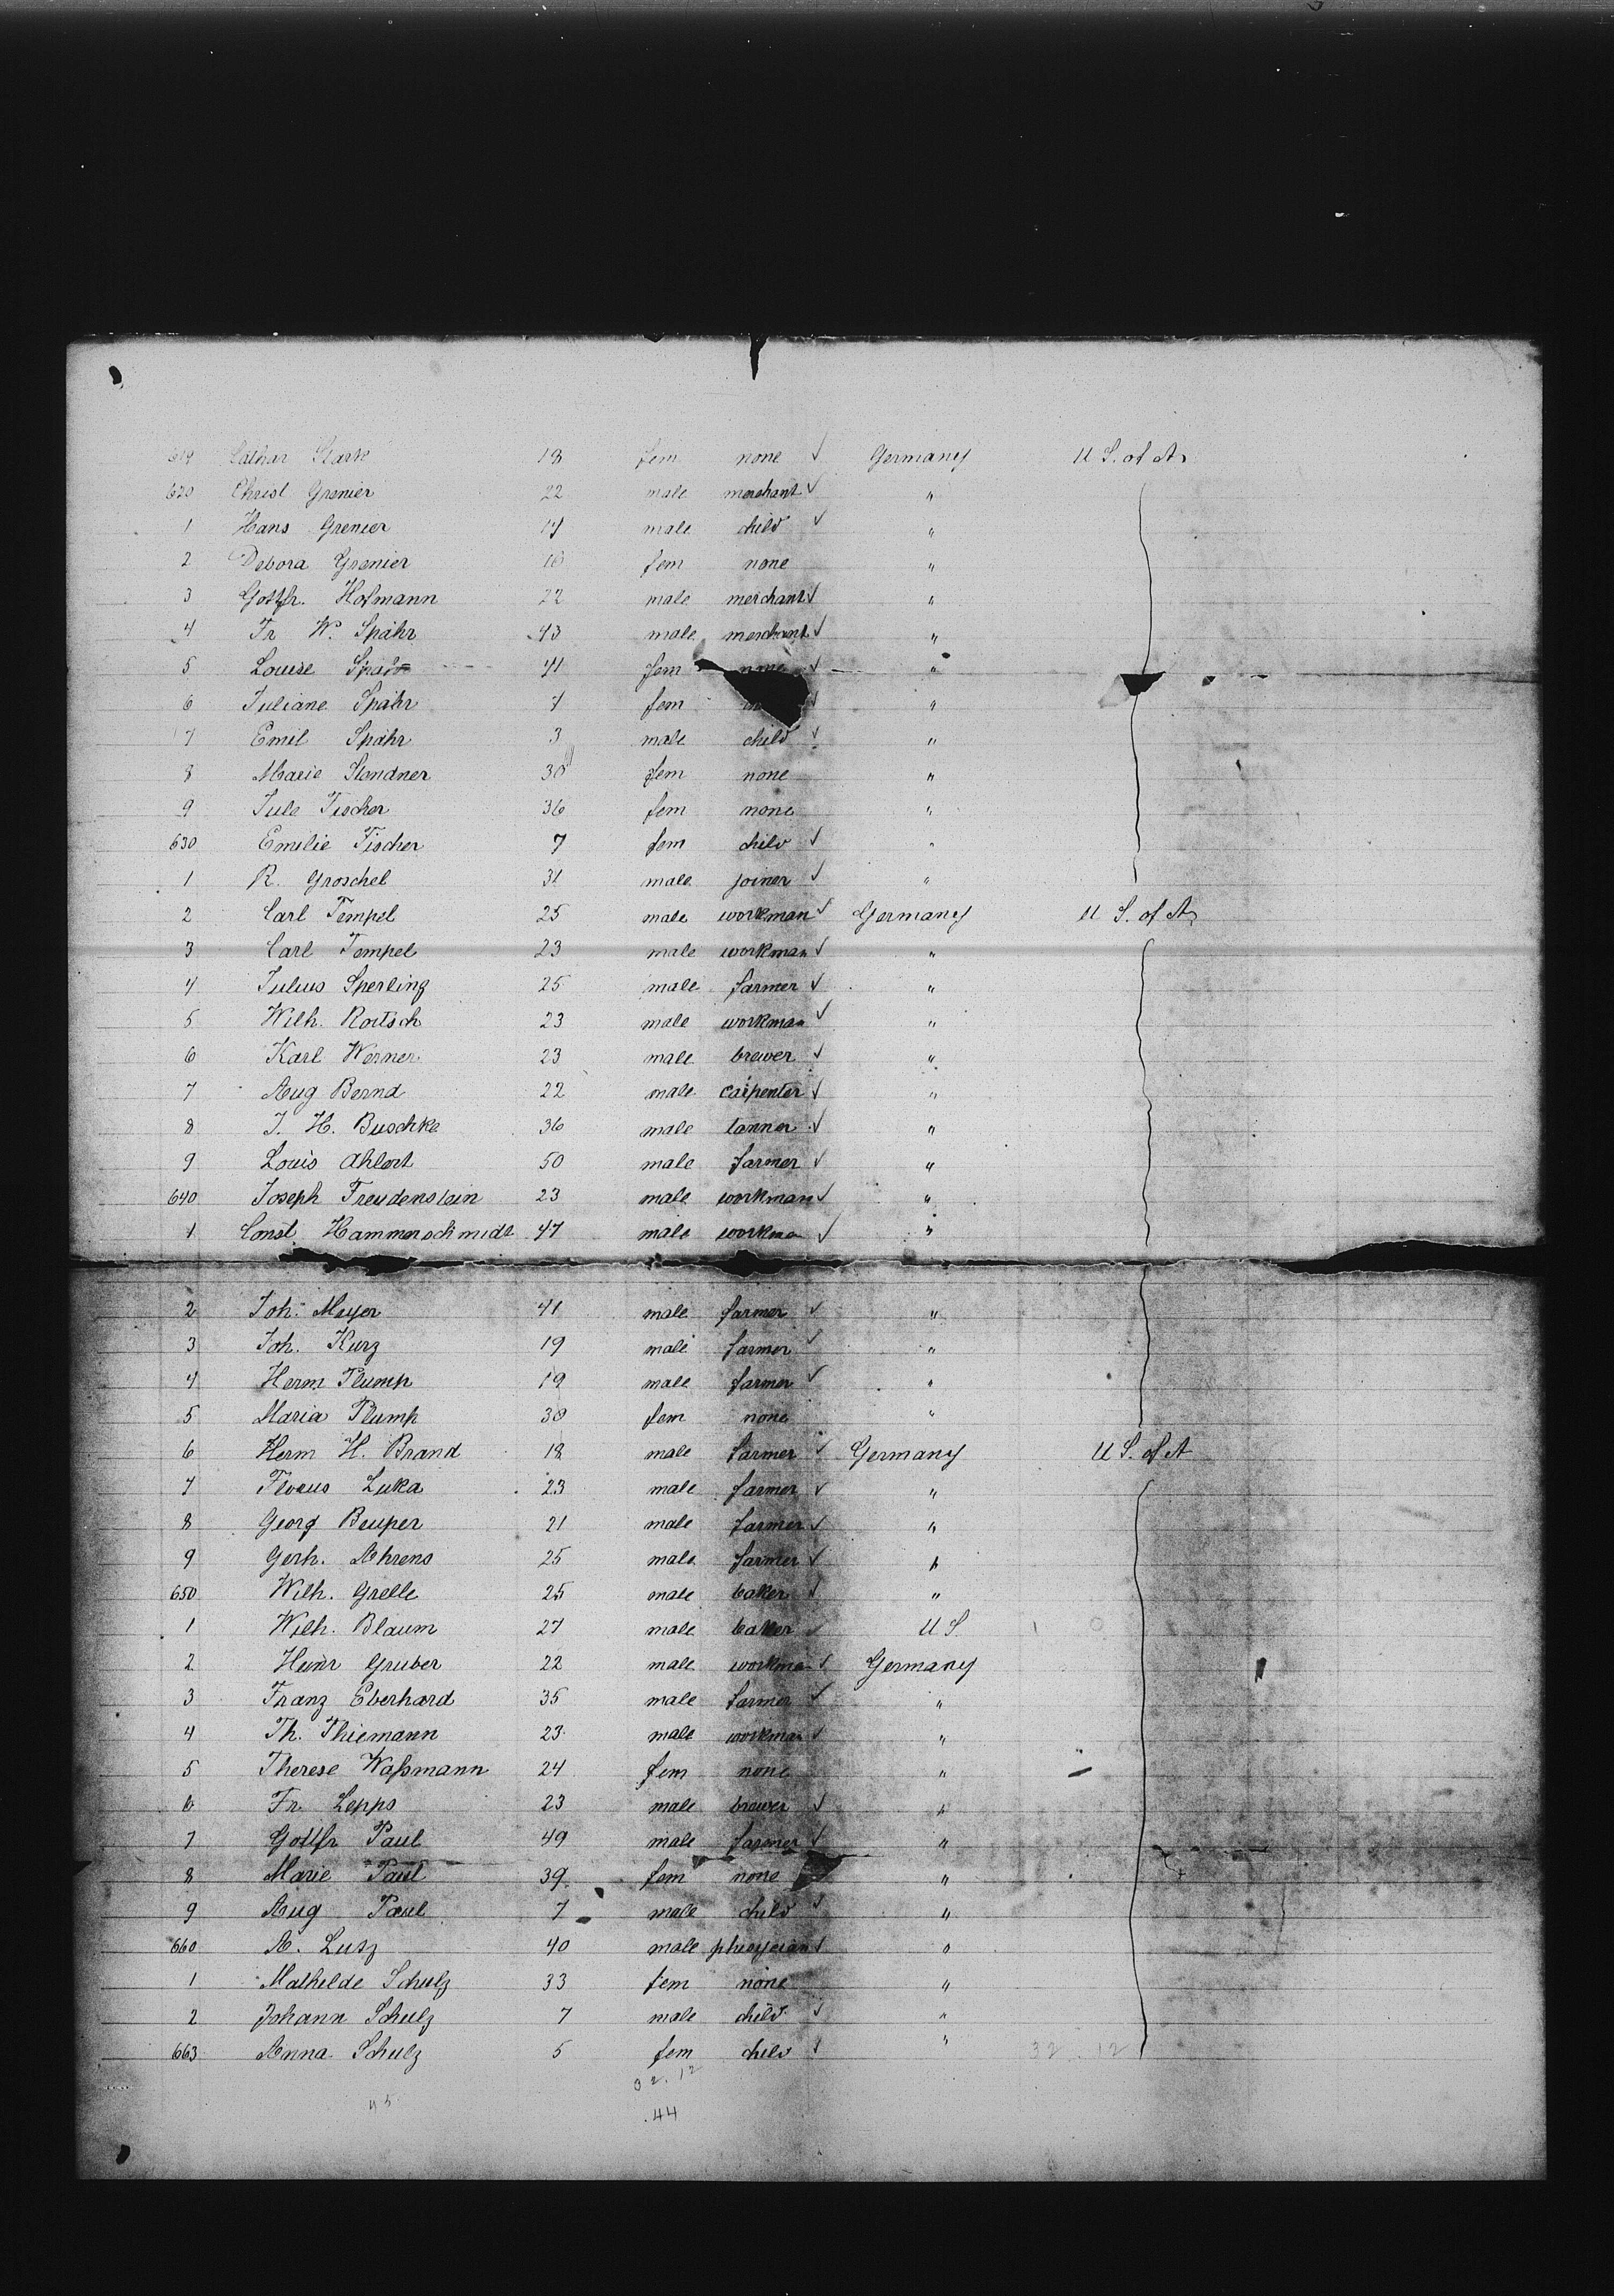 619 Cathar Stark 18 fem none ✓ Germany U S. of A.
620 Christ Grenier 22 male merchant ✓ "
1 Hans Grenier 17 male child ✓ "
2 Debora Grenier 10 fem none "
3 Gottfr. Hofmann 22 male merchant ✓ "
4 Fr W. Spähr 43 male merchant ✓ "
5 Louise Spähr 41 fem none ✓ "
6 Juliane Spähr 7 fem ✓ "
7 Emil Spähr 3 male child ✓ "
8 Marie Stondner 30 fem none "
9 Jule Fischer 36 fem none "
630 Emilie Fischer 7 fem child ✓ "
1 R. Groschel 31 male joiner ✓ "
2 Carl Tempel 25 male workman ✓ Germany U S. of A.
3 Carl Tempel 23 male workman ✓ "
4 Julius Sperling 25 male farmer ✓ "
5 Wilh. Roitsch 23 male workman ✓ "
6 Karl Werner 23 male brewer ✓ "
7 Aug Bernd 22 male carpenter ✓ "
8 J. H. Buschke 36 male tanner ✓ "
9 Louis Ahlert 50 male farmer ✓ "
640 Joseph Freudenstein 23 male workman ✓ "
1 Const Hammerschmidt 47 male workman ✓ "
2 Joh. Meyer 41 male farmer ✓ "
3 Joh. Kurz 19 male farmer ✓ "
4 Herm Plump 19 male farmer ✓ "
5 Maria Plump 30 fem none "
6 Herm H. Brand 18 male farmer ✓ Germany U S. of A
7 Luka 23 male farmer ✓ "
8 Georg Beuper 21 male farmer ✓ "
9 Gerh. Ahrens 25 male farmer ✓ "
650 Wilh. Grelle 25 male baker ✓ "
1 Wilh. Blaum 27 male baker ✓ U S.
2 Heinr Gruber 22 male workman ✓ Germany
3 Franz Eberhard 35 male farmer ✓ "
4 Th. Thiemann 23 male workman ✓ "
5 Therese Waßmann 24 fem none "
6 Fr. Lepps 23 male brewer ✓ "
7 Gottfr Paul 49 male farmer ✓ "
8 Marie Paul 39 fem none "
9 Aug Paul 7 male child ✓ "
660 A. Lusz 40 male physycian ✓ "
1 Mathilde Schulz 33 fem none "
2 Johann Schulz 7 male child ✓ "
663 Anna Schulz 5 fem child ✓ " 32.12
32.12
45
.44